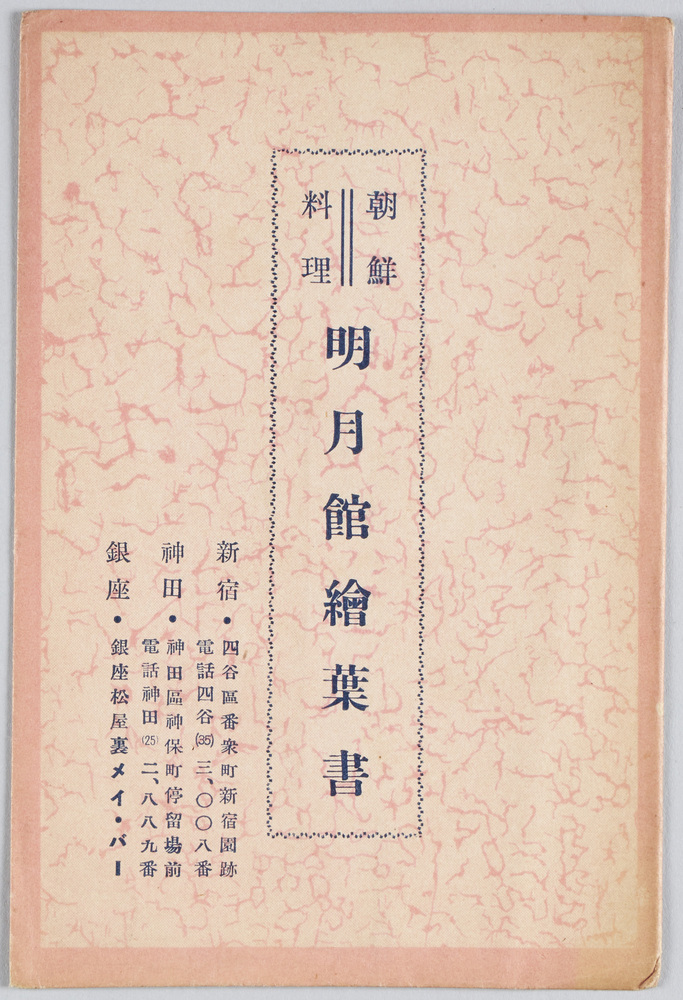 朝鮮
料理
明月館繪葉書
新宿・四谷區番衆町新宿園跡
電話四谷(35)三、〇〇八番
神田・神田區神保町停留場前
電話神田(25)二、八八九番
銀座・銀座松屋裏メイ・バー